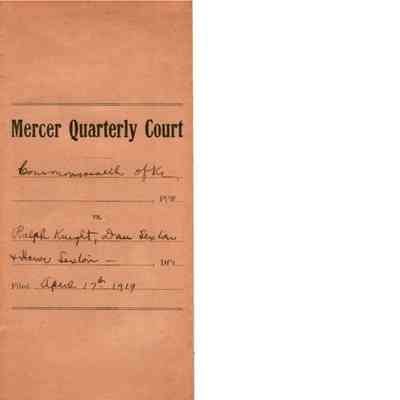 Mercer Quarterly Court
Commonwealth of Ky
PFF
vs.
Ralph Knight, Dan Sexton
& Howe Sexton —
DFT
Filed April 17th 1919